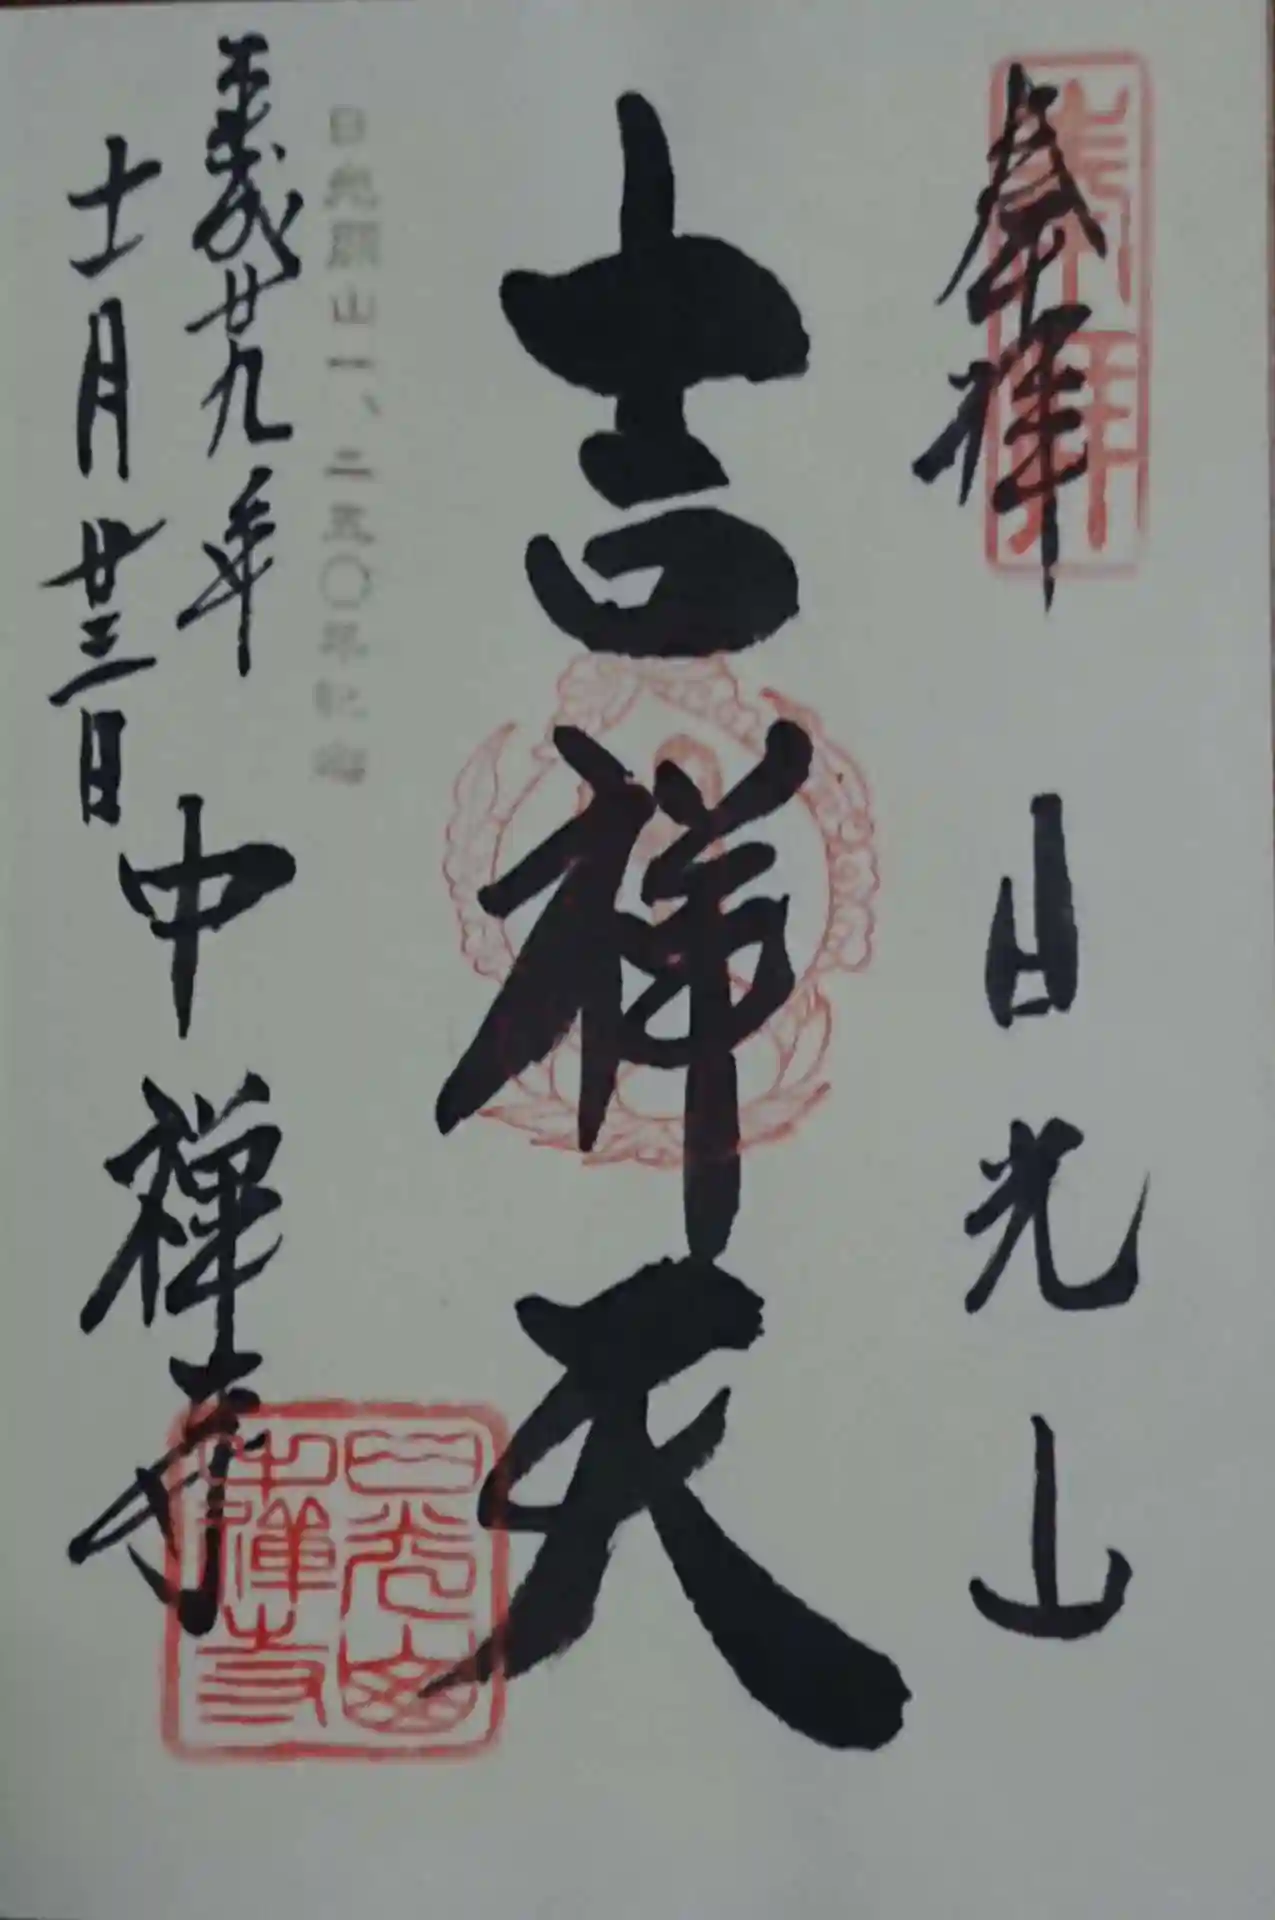 奉拝
日光山
吉祥天
日光開山一、二五〇年記念
平成廿九年
十一月廿三日
中禅寺
奉拝
日光山
中禅寺